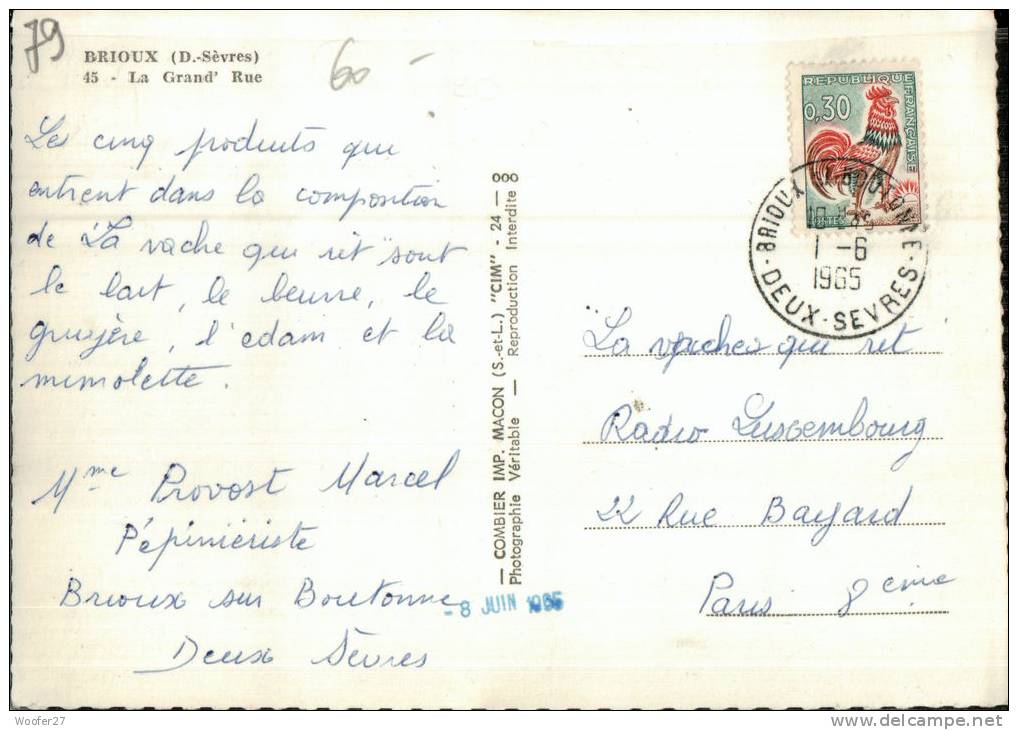 79
BRIOUX (D.-Sèvres)
45 - La Grand' Rue
60 -
Les cinq produits qui
entrent dans la composition
de "La vache qui rit sont
le lait, le beurre, le
gruyère, l'edam et la
mimolette.
Mme Provost Marcel
Pépiniériste
Brioux sur Boutonne
Deux Sèvres
— COMBIER IMP. MACON (S.-et-L.) "CIM" - 24 — ooo
Photographie Véritable — Reproduction Interdite
- 8 JUIN 1965
REPUBLIQUE
FRANÇAISE
0,30
POSTES
BRIOUX BOUTONNE
1 - 6
1965
DEUX-SEVRES
La vache qui rit
Radio Luxembourg
22 Rue Bayard
Paris 8eme
Woofer27
www.delcampe.net